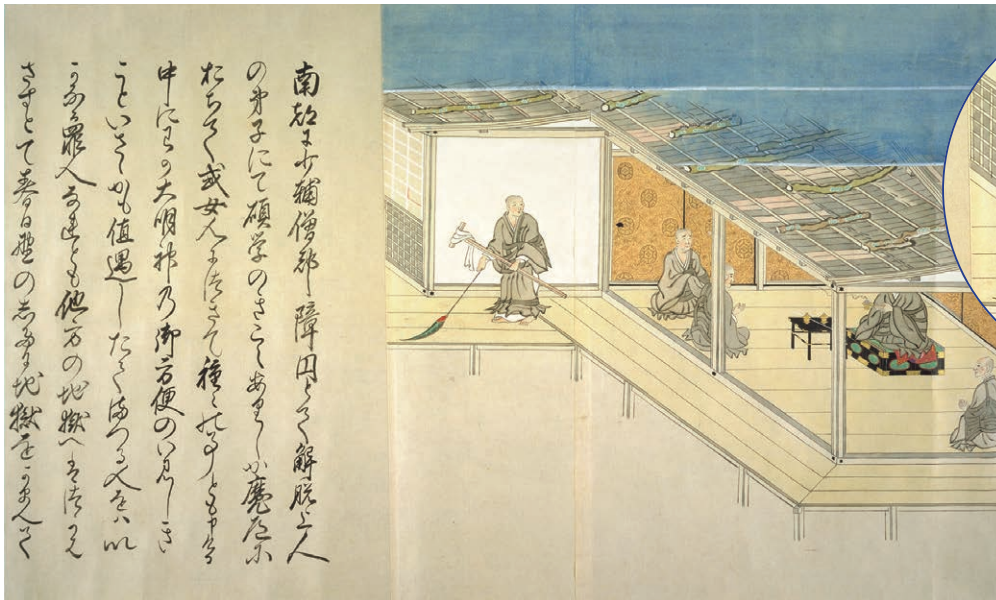 南都に少輔僧都障円とて解脱上人
の弟子にて碩学のきこえありしか魔道に
おちて或女人につきて種々の事とも申ける
中にわか大明神乃御方便のいみしき
こといさゝかも値遇したてまつる人をハいか
なる罪人なれとも他方の地獄へはつかは
さすして春日野の志たに地獄をかまへて